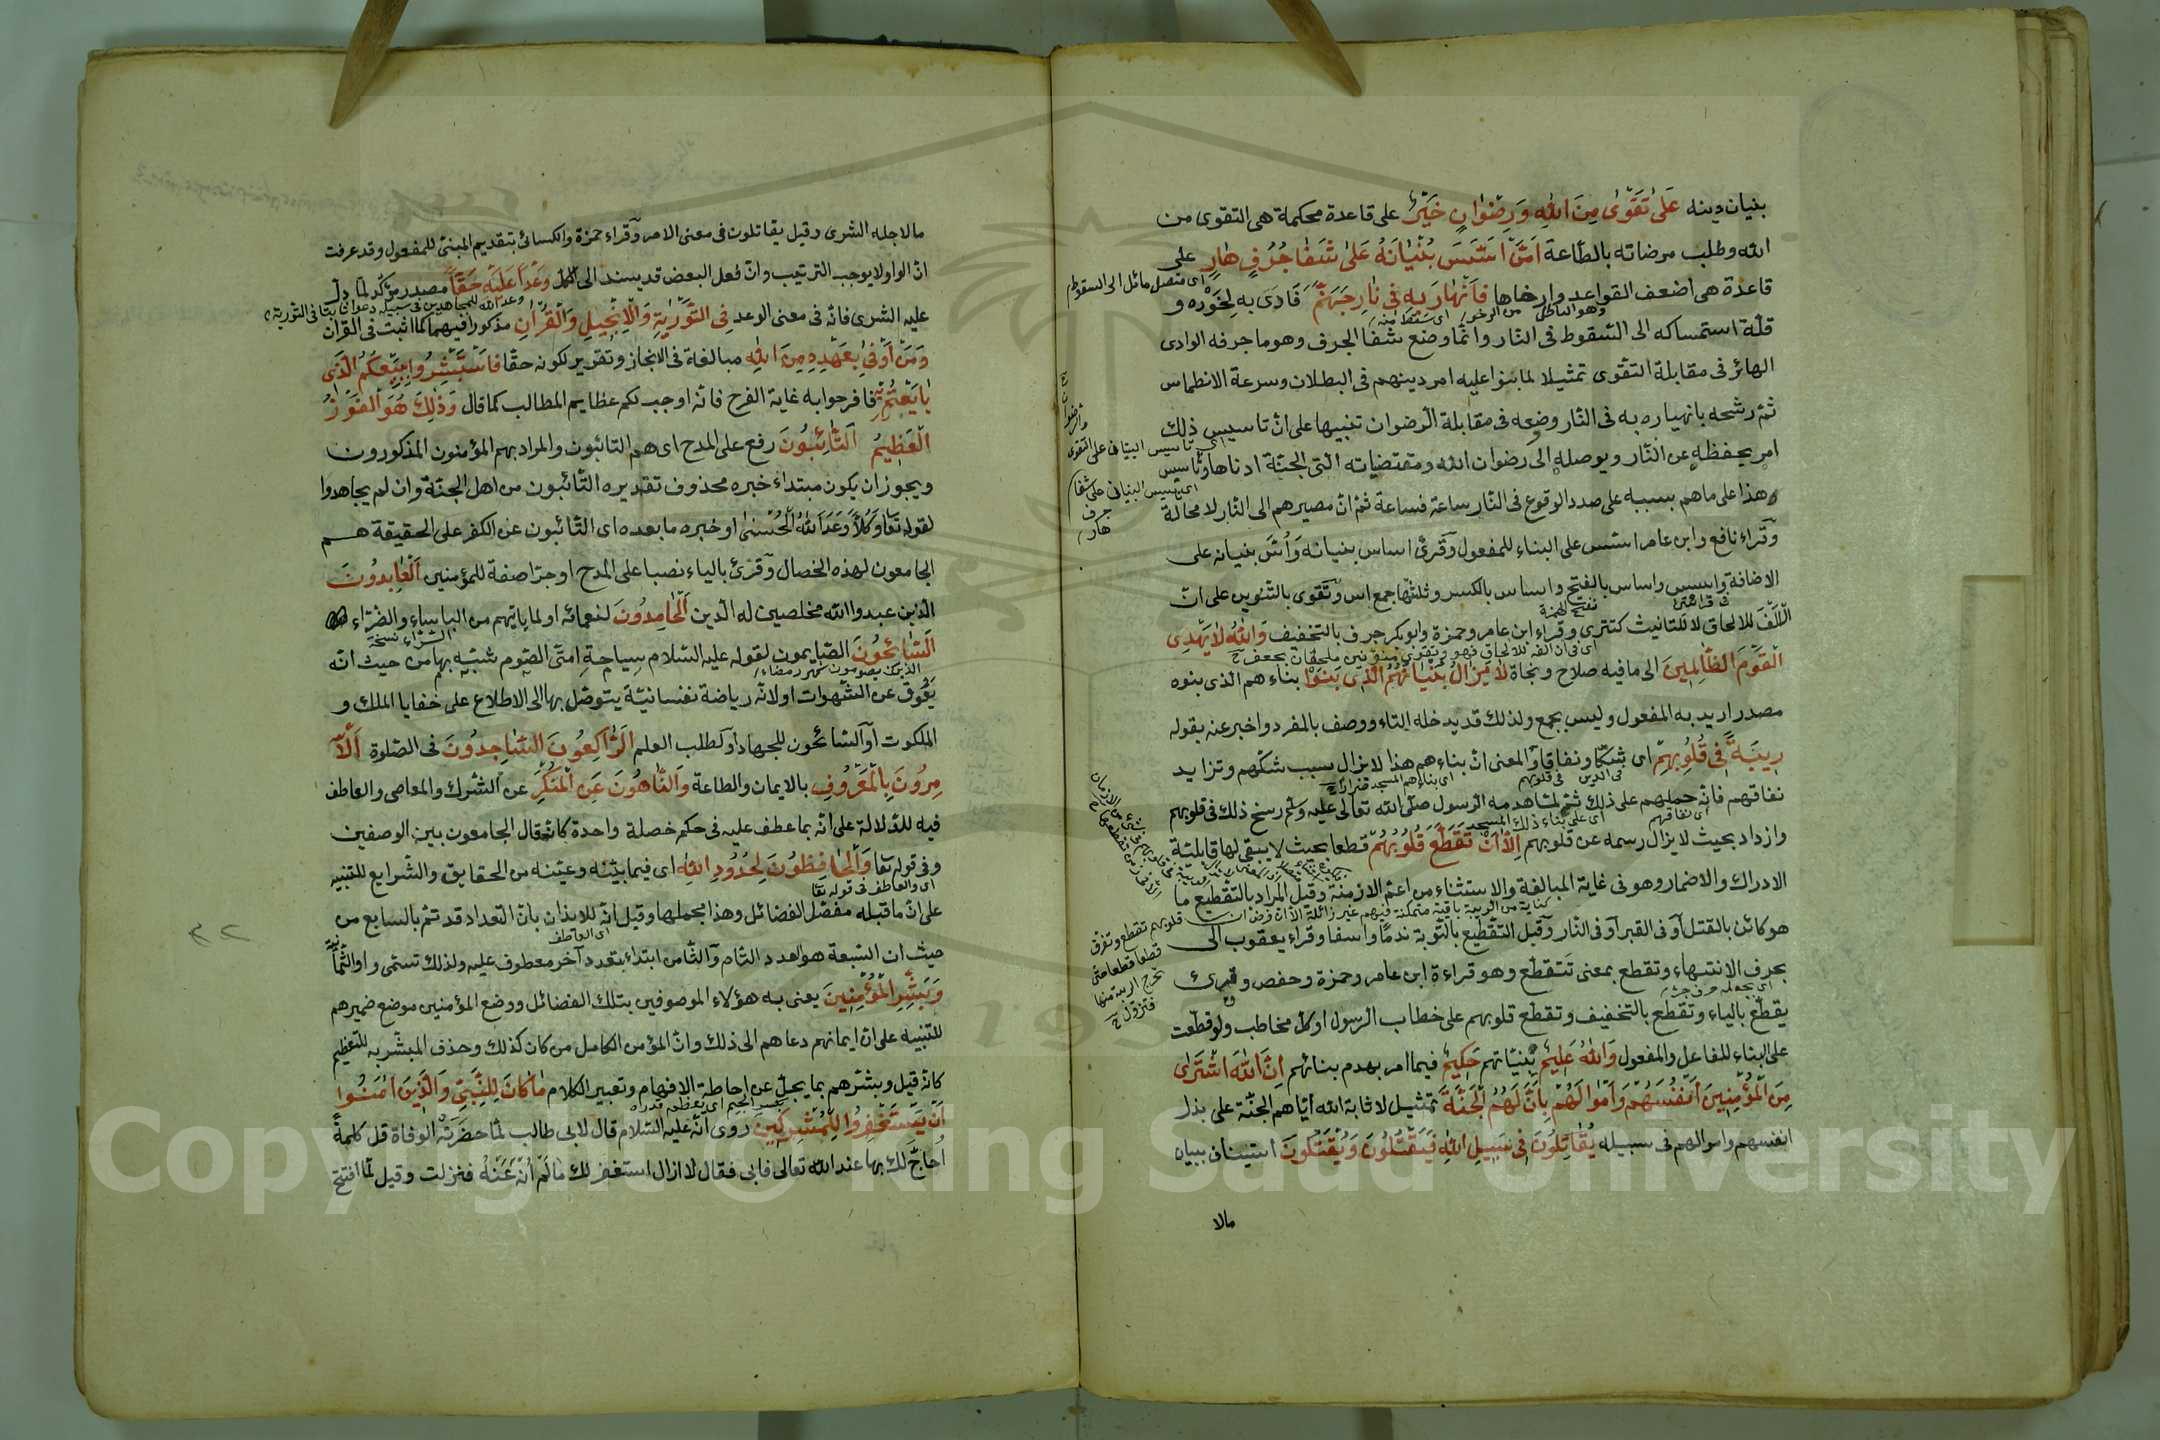 بنيان دينه عَلٰى تَقْوٰى مِنَ اللّٰهِ وَرِضْوَانٍ خَيْرٌ على قاعدة محكمة هى التقوى من
الله وطلب مرضاته بالطاعة اَمْ مَّنْ اَسَّسَ بُنْيَانَهُ عَلٰى شَفَا جُرُفٍ هَارٍ على
اى متصل مائل الى السقوط
قاعدة هى اضعف القواعد وارخاها فَانْهَارَ بِهِ فِى نَارِ جَهَنَّمَ فادى به لخوره و
قلة استمساكه الى السقوط فى النار وانما وضع شفا الجرف وهو ما جرفه الوادى
الهائر فى مقابلة التقوى تمثيلا لما بنوا عليه امر دينهم فى البطلان وسرعة الانطماس
ثم رشحه بانهياره به فى النار وضعه فى مقابلة الرضوان تنبيها على ان تاسيس ذلك
اى تاسيس البنيان على التقوى
امر يحفظه عن النار ويوصله الى رضوان الله ومقتضياته التى الجنة ادناها وتاسيس
اى تاسيس البنيان على شفا
جرف
هار
هذا على ما هم بسببه على صدد الوقوع فى النار ساعة فساعة ثم ان مصيرهم الى النار لا محالة
وقراء نافع وابن عامر اسس على البناء للمفعول وقرئ اساس بنيانه واُسّ بنيانه على
الاضافة واسس واساس بالفتح واساس بالكسر وثلثها جمع اس وتقوى بالتنوين على ان
الالف للالحاق لا للتانيث كتترى وقراء ابن عامر وحمزة وابو بكر جرف بالتخفيف وَاللّٰهُ لَا يَهْدِى
الْقَوْمَ الظَّالِمِينَ الى ما فيه صلاح ونجاة لَا يَزَالُ بُنْيَانُهُمُ الَّذِى بَنَوْا بناءهم الذى بنوه
مصدر اريد به المفعول وليس بجمع ولذلك قد يدخله التاء ووصف بالمفرد واخبر عنه بقوله
رِيبَةً فِى قُلُوبِهِمْ اى شكا ونفاقا والمعنى ان بناءهم هذا لا يزال سبب شكهم وتزايد
نفاقهم فانه حملهم على ذلك ثم لما هدمه الرسول صلى الله تعالى عليه وسلم رسخ ذلك فى قلوبهم
اى على بناء ذلك المسجد
اى نفاقهم
وازداد بحيث لا يزال رسمه عن قلوبهم اِلَّا اَنْ تَقَطَّعَ قُلُوبُهُمْ قطعا بحيث لا يبقى لها قابلية
الادراك والاضمار وهو فى غاية المبالغة والاستثناء من اعم الازمنة وقيل المراد بالتقطيع ما
هو كائن بالقتل او فى القبر او فى النار وقيل التقطيع بالتوبة ندما واسفا وقراء يعقوب الى
قلوبهم تقطع وتفرق
قطعا قطعا حتى
تخرج الريبة منها
فتزول
بحرف الانتهاء وتقطع بمعنى تتقطع وهو قراءة ابن عامر وحمزة وحفص وقرئ
يقطع بالياء وتقطع بالتخفيف وتقطع قلوبهم على خطاب الرسول او كل مخاطب ولو قطعت
على البناء للفاعل والمفعول وَاللّٰهُ عَلِيمٌ بنيّاتهم حَكِيمٌ فيما امر بهدم بنائهم اِنَّ اللّٰهَ اشْتَرٰى
مِنَ الْمُؤْمِنِينَ اَنْفُسَهُمْ وَاَمْوَالَهُمْ بِاَنَّ لَهُمُ الْجَنَّةَ تمثيل لاثابة الله اياهم الجنة على بذل
انفسهم واموالهم فى سبيله يُقَاتِلُونَ فِى سَبِيلِ اللّٰهِ فَيَقْتُلُونَ وَيُقْتَلُونَ استيناف ببيان
مالا
مالاجله الشرى وقيل يقاتلون فى معنى الامر وقراء حمزة والكسائى بتقديم المبنى للمفعول وقد عرفت
ان الواو لا يوجب الترتيب وان فعل البعض قد يسند الى الكل وَعْدًا عَلَيْهِ حَقًّا مصدر مؤكد لما دل
عليه الشرى فانه فى معنى الوعد فِى التَّوْرٰيةِ وَالْاِنْجِيلِ وَالْقُرْاٰنِ مذكورا فيهما كما اثبت فى القران
وَمَنْ اَوْفٰى بِعَهْدِهِ مِنَ اللّٰهِ مبالغة فى الانجاز وتقرير لكونه حقا فَاسْتَبْشِرُوا بِبَيْعِكُمُ الَّذِى
بَايَعْتُمْ بِهِ فافرحوا به غاية الفرح فانه اوجب لكم عظايم المطالب كما قال وَذٰلِكَ هُوَ الْفَوْزُ
الْعَظِيمُ اَلتَّائِبُونَ رفع على المدح اى هم التائبون والمراد بهم المؤمنون المذكورون
ويجوز ان يكون مبتداء خبره محذوف تقديره التائبون من اهل الجنة وان لم يجاهدوا
لقوله تعا وَكُلًّا وَعَدَ اللّٰهُ الْحُسْنٰى او خبره ما بعده اى التائبون عن الكفر على الحقيقة هم
الجامعون لهذه الخصال وقرئ بالياء نصبا على المدح او جرا صفة للمؤمنين اَلْعَابِدُونَ
الذين عبدوا الله مخلصين له الدين اَلْحَامِدُونَ لنعمائه او لما ياتيهم من الباساء والضراء
السراء نسخة
اَلسَّائِحُونَ الصايمون لقوله عليه السلام سياحة امتى الصوم شبه بها من حيث انه
الذين يصومون شهر رمضان
يعوق عن الشهوات او لانه رياضة نفسانية يتوصل بها الى الاطلاع على خفايا الملك و
الملكوت او السائحون للجهاد او لطلب العلم اَلرَّاكِعُونَ السَّاجِدُونَ فى الصلوة اَلْاٰ
مِرُونَ بِالْمَعْرُوفِ بالايمان والطاعة وَالنَّاهُونَ عَنِ الْمُنْكَرِ عن الشرك والمعاصى والعاطف
فيه للدلالة على انه بما عطف عليه فى حكم خصلة واحدة كانه قال الجامعون بين الوصفين
وفى قوله تعا وَالْحَافِظُونَ لِحُدُودِ اللّٰهِ اى فيما بينه وعينه من الحقايق والشرايع للتنبيه
اى والعاطف فى قوله تعا
على ان ما قبله مفصل الفضائل وهذا مجملها وقيل انه للايذان بان التعداد قد تم بالسابع من
اى العاطف
حيث ان السبعة هو العدد التام والثامن ابتداء بتعدد آخر معطوف عليه ولذلك تسمى واو الثمانية
وَبَشِّرِ الْمُؤْمِنِينَ يعنى به هؤلاء الموصوفين بتلك الفضائل ووضع المؤمنين موضع ضميرهم
للتنبيه على ان ايمانهم دعاهم الى ذلك وان المؤمن الكامل من كان كذلك وحذف المبشر به للتعظيم
كانه قيل وبشرهم بما يجل عن احاطة الافهام وتعبير الكلام مَا كَانَ لِلنَّبِىِّ وَالَّذِينَ اٰمَنُوا
اَنْ يَسْتَغْفِرُوا لِلْمُشْرِكِينَ روى انه عليه السلام قال لابى طالب لما حضرته الوفاة قل كلمة
احاج لك بها عند الله تعالى فابى فقال لا ازال استغفر لك ما لم اُنه عنه فنزلت وقيل لما افتتح
Copyright © King Saud University